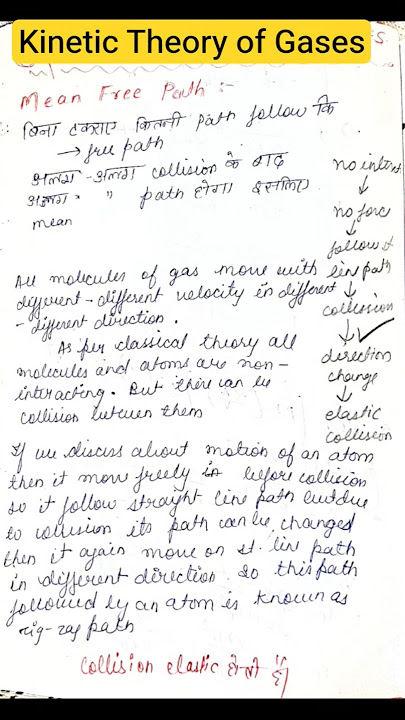 Kinetic Theory of Gases
S.
Mean Free Path :-
बिना टकराए कितनी Path follow कि
→ free path
अलग - अलग collision के बाद
अलग " " path होगा इसलिए
mean
no intert
↓
no force
↓
follow st
line path
↓
collision
↓ ✓
direction
change
↓
elastic
collision
All molecules of gas move with
different - different velocity in different
- different direction.
As per classical theory all
molecules and atoms are non-
interacting. But their can be
collision between them
If we discuss about motion of an atom
then it move freely in before collision
so it follow straight line path but due
to collision its path can be changed
then it again move on st. line path
in different direction. so this path
followed by an atom is known as
zig-zag path
collision elastic होती है